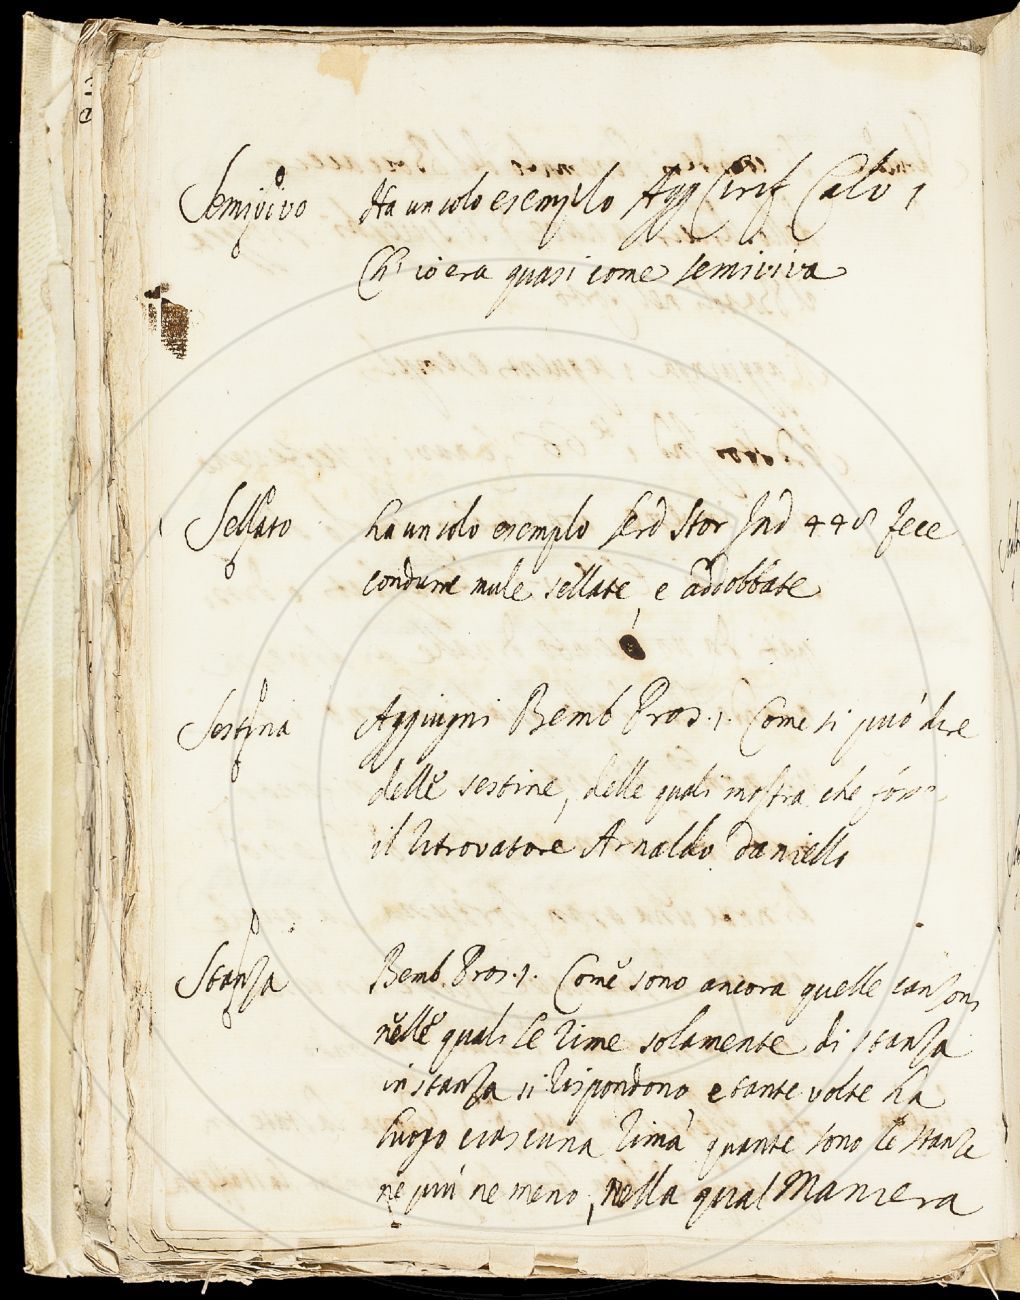 Semivivo Ha un solo esemplo Agg Cirif Calv 1
Ch' io era quasi come semiviva
Sellato ha un solo esemplo Serd Stor Ind 448 fece
condurre mule sellate, e addobbate
Sestina Aggiugni Bemb Pros. 1. Come si può dire
delle sestine, delle quali mostra che fosse
il ritrovatore Arnaldo Daniello
Stanza Bemb. Pros. 1. Come sono ancora quelle canzoni
nelle quali le rime solamente di stanza
in stanza si rispondono e tante volte ha
luogo ciascuna rima quante sono le stanze
ne più ne meno, nella qual Maniera